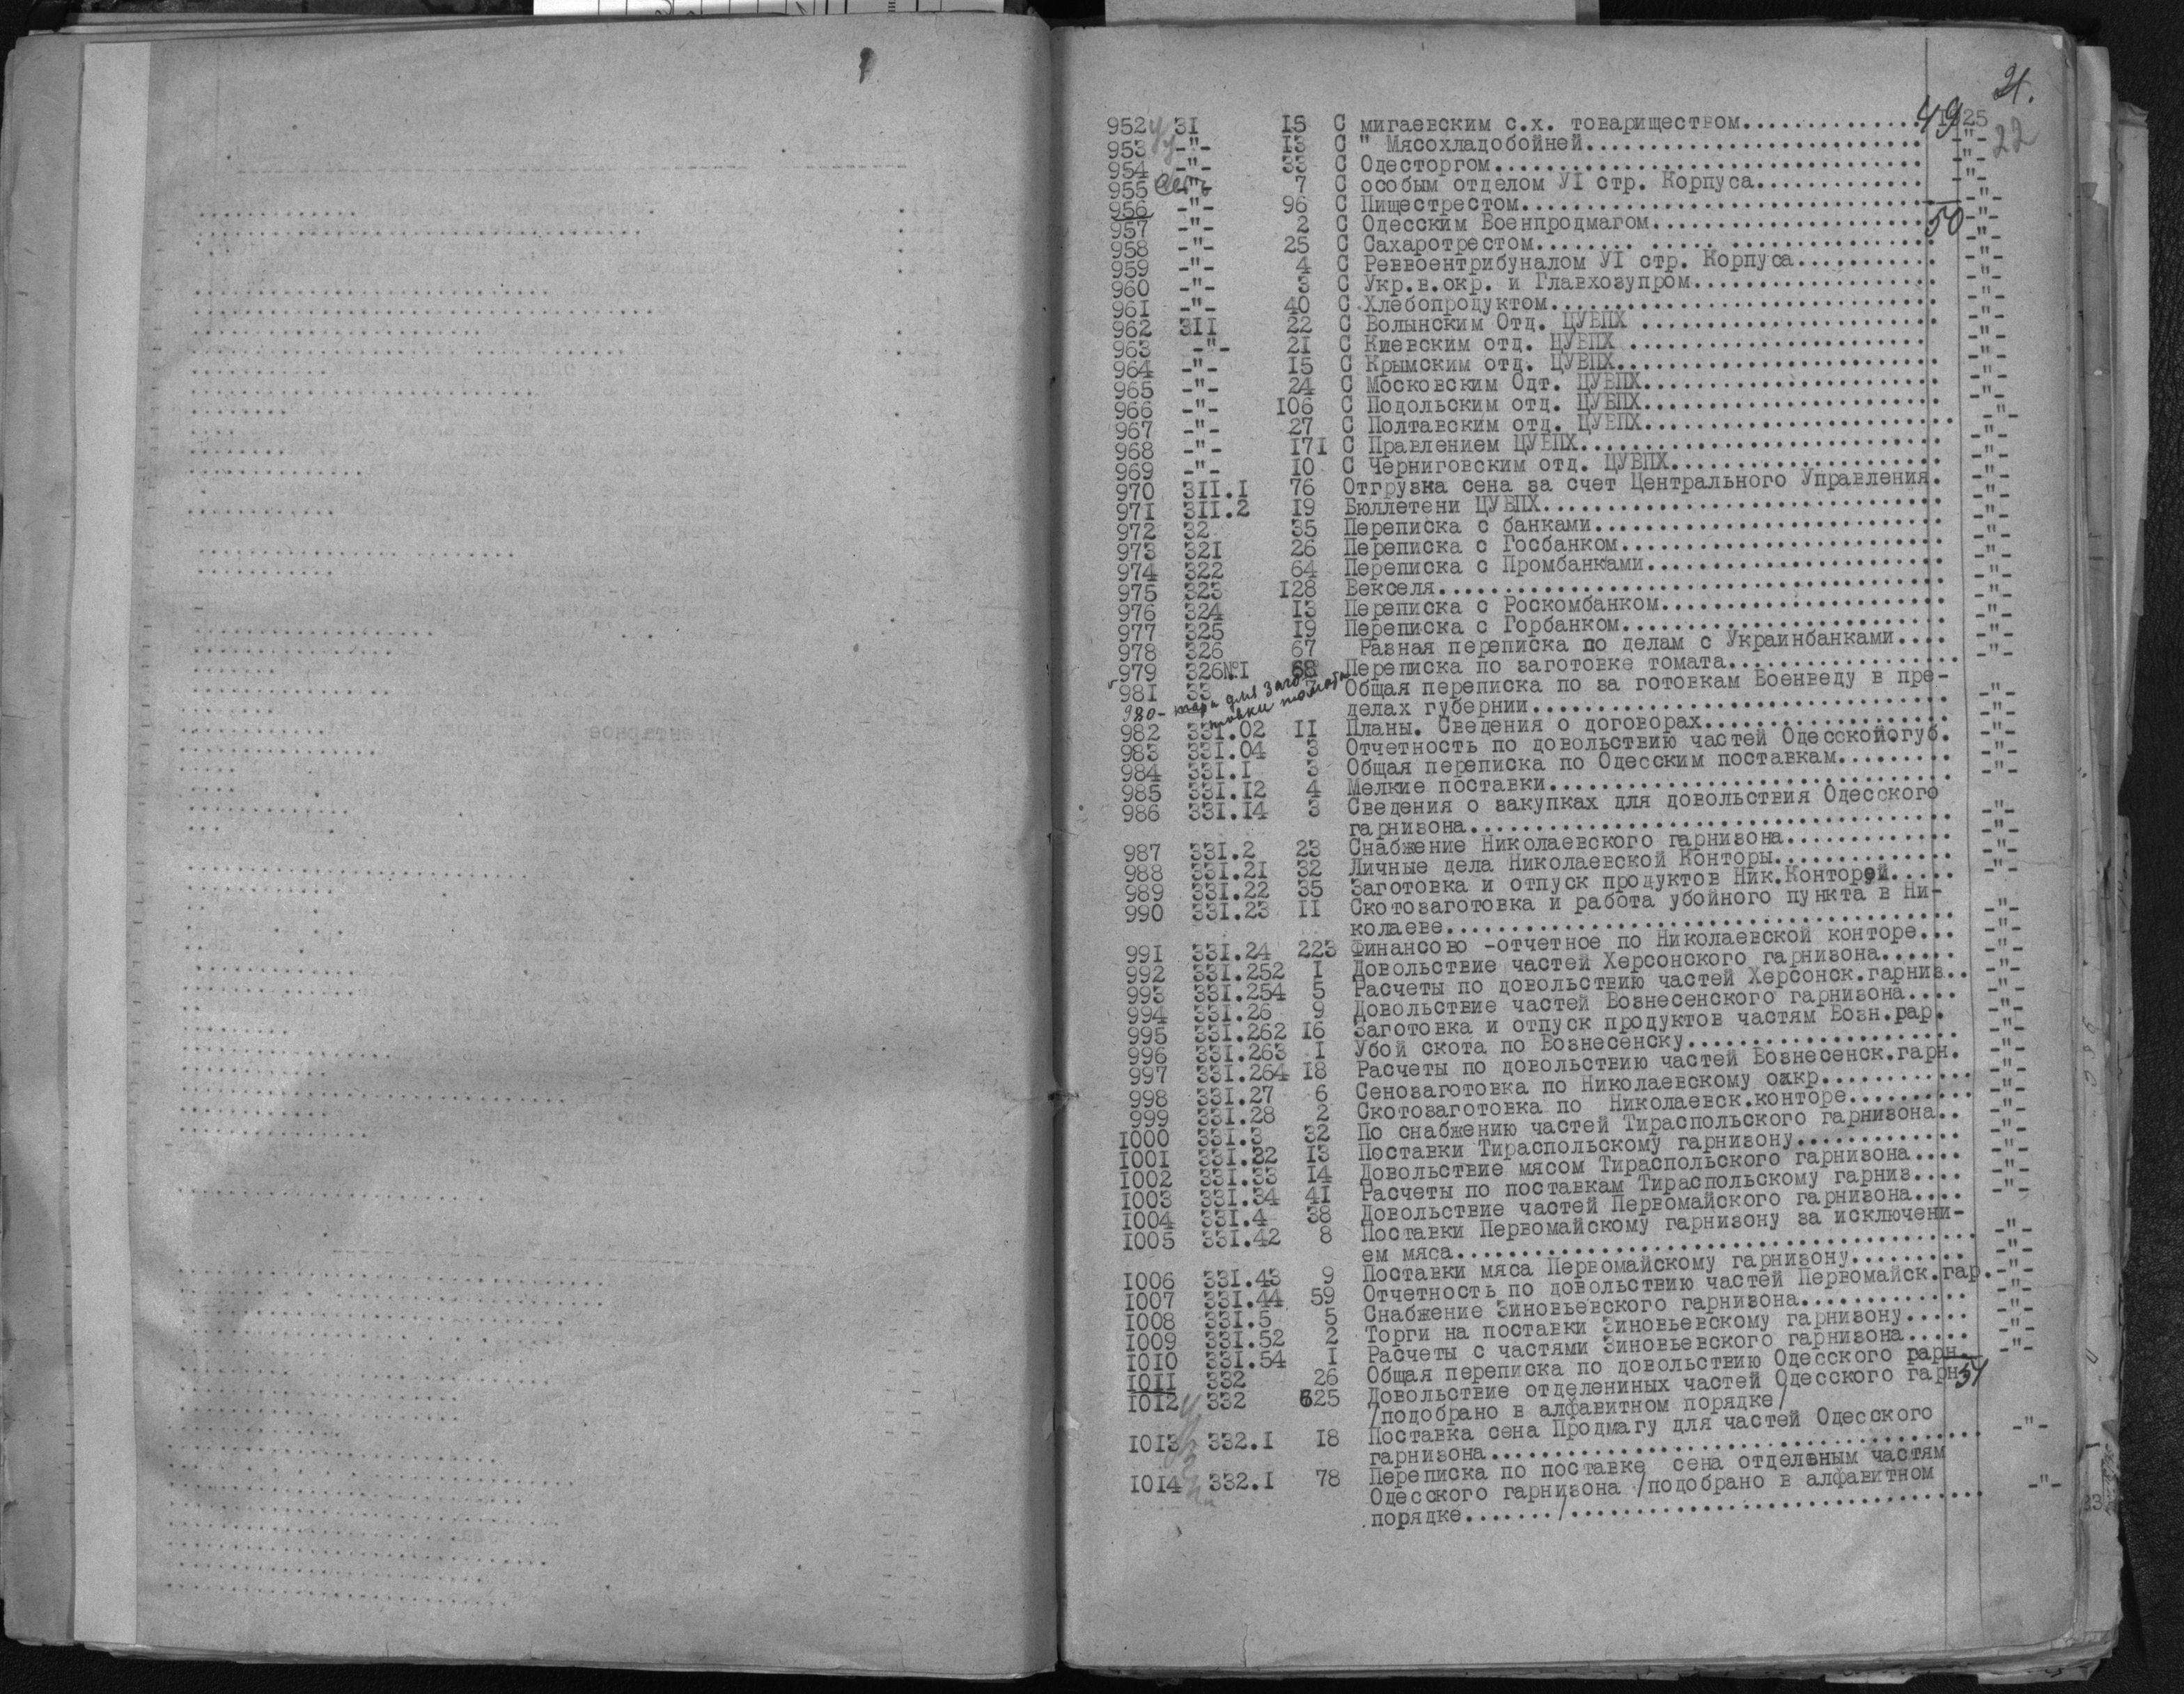 21.
22
952 31 15 С мигаевским с.х. товариществом.............. 49 1925
953 -"- 13 С " Мясохладобойней.......................... -"-
954 -"- 33 С Одесторгом................................. -"-
955 -"- 7 С особым отделом УI стр. Корпуса............. -"-
956 -"- 96 С Пищестрестом............................... -"-
957 -"- 2 С Одесским Военпродмагом..................... 50 -"-
958 -"- 25 С Сахаротрестом........ ..... ................ -"-
959 -"- 4 С Реввоентрибуналом УI стр. Корпуса........... -"-
960 -"- 3 С Укр.в.окр. и Главхозупром................... -"-
961 -"- 40 С Хлебопродуктом.............................. -"-
962 3II 22 С Волынским Отд. ЦУВПХ ....................... -"-
963 -"- 21 С Киевским отд. ЦУВПХ ....................... -"-
964 -"- 15 С Крымским отд. ЦУВПХ......................... -"-
965 -"- 24 С Московским Одт. ЦУВПХ....................... -"-
966 -"- 106 С Подольским отд. ЦУВПХ....................... -"-
967 -"- 27 С Полтавским отд. ЦУВПХ........................ -"-
968 -"- 171 С Правлением ЦУВПХ............................ -"-
969 -"- 10 С Черниговским отд. ЦУВПХ..................... -"-
970 3II.I 76 Отгрузка сена за счет Центрального Управления. -"-
971 3II.2 19 Бюллетени ЦУВПХ............................... -"-
972 32 35 Переписка с банками........................... -"-
973 321 26 Переписка с Госбанком......................... -"-
974 322 64 Переписка с Промбанками....................... -"-
975 323 128 Векселя....................................... -"-
976 324 13 Переписка с Роскомбанком...................... -"-
977 325 19 Переписка с Горбанком......................... -"-
978 326 67 Разная переписка по делам с Украинбанками.... -"-
979 326№I 68 Переписка по заготовке томата.................. -"-
981 33 7 Общая переписка по за готовкам Военведу в пре-
980- тара для заготовки томата
делах губернии................................ -"-
982 331.02 II Планы. Сведения о договорах................... -"-
983 331.04 3 Отчетность по довольствию частей Одесской.губ. -"-
984 331.I 3 Общая переписка по Одесским поставкам......... -"-
985 331.12 4 Мелкие поставки............................... -"-
986 331.14 3 Сведения о закупках для довольствия Одесского
гарнизона..................................... -"-
987 331.2 23 Снабжение Николаевского гарнизона............. -"-
988 331.21 32 Личные дела Николаевской Конторы.............. -"-
989 331.22 35 Заготовка и отпуск продуктов Ник.Конторой..... -"-
990 331.23 II Скотозаготовка и работа убойного пункта в Ни-
колаеве....................................... -"-
991 331.24 223 Финансово -отчетное по Николаевской конторе... -"-
992 331.252 I Довольствие частей Херсонского гарнизона...... -"-
993 331.254 5 Расчеты по довольствию частей Херсонск.гарниз.. -"-
994 331.26 9 Довольствие частей Вознесенского гарнизона.... -"-
995 331.262 16 Заготовка и отпуск продуктов частям Возн.рар. -"-
996 331.263 I Убой скота по Вознесенску..................... -"-
997 331.264 18 Расчеты по довольствию частей Вознесенск.гарн. -"-
998 331.27 6 Сенозаготовка по Николаевскому окр............ -"-
999 331.28 2 Скотозаготовка по Николаевск.конторе.......... -"-
1000 331.3 32 По снабжению частей Тираспольского гарнизона.. -"-
1001 331.32 13 Поставки Тираспольскому гарнизону............. -"-
1002 331.33 14 Довольствие мясом Тираспольского гарнизона.... -"-
1003 331.34 41 Расчеты по поставкам Тираспольскому гарниз.... -"-
1004 331.4 38 Довольствие частей Первомайского гарнизона.... -"-
1005 331.42 8 Поставки Первомайскому гарнизону за исключени-
ем мяса........................................ -"-
1006 331.43 9 Поставки мяса Первомайскому гарнизону......... -"-
1007 331.44 59 Отчетность по довольствию частей Первомайск.гар. -"-
1008 331.5 5 Снабжение Зиновьевского гарнизона............. -"-
1009 331.52 2 Торги на поставки Зиновьевскому гарнизону..... -"-
1010 331.54 I Расчеты с частями Зиновьевского гарнизона..... -"-
1011 332 26 Общая переписка по довольствию Одесского рарн. -"-
1012 332 625 Довольствие отделениных частей Одесского гарн 51
/подобрано в алфавитном порядке/
1013 332.I 18 Поставка сена Продмагу для частей Одесского
гарнизона...................................... -"-
1014 332.I 78 Переписка по поставке сена отдельным частям
Одесского гарнизона /подобрано в алфавитном
порядке......./................................ -"-